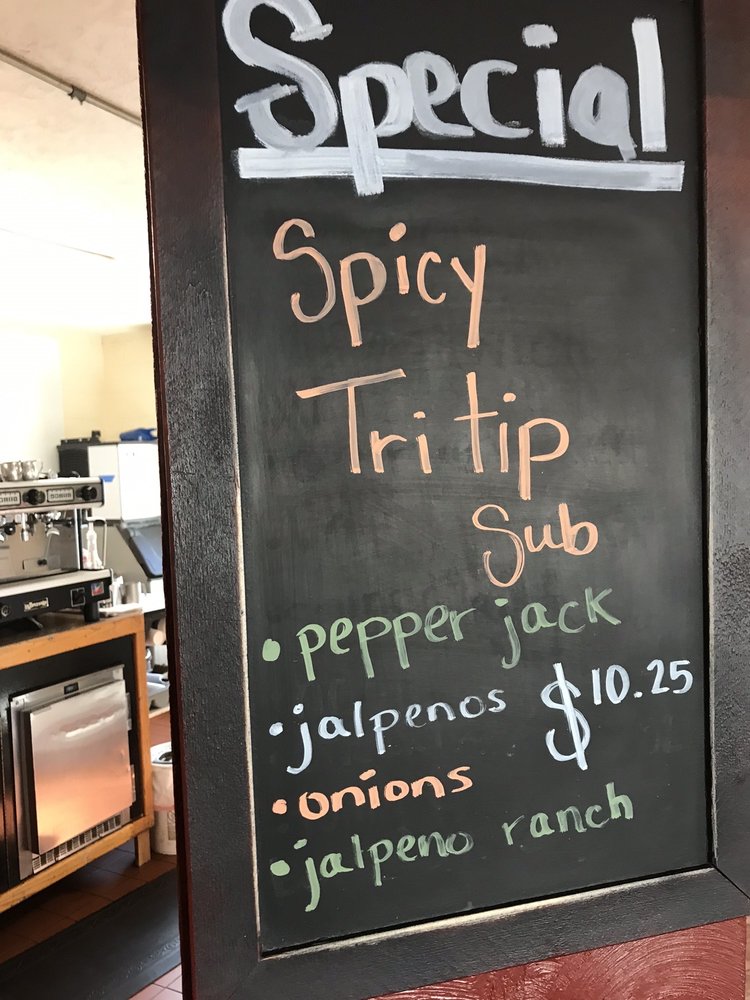 Special
Spicy
Tri tip
Sub
• pepper jack
• jalpenos $10.25
• onions
• jalpeno ranch